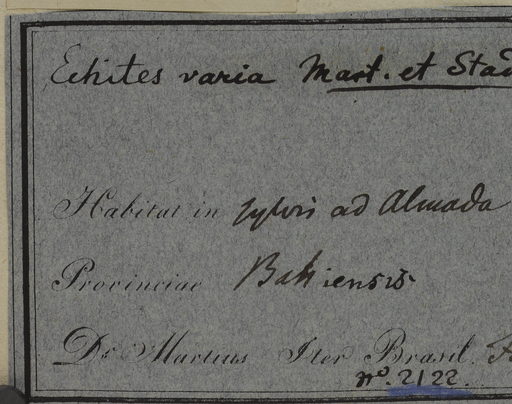 Echites varia Mart. et Stad
Habitat in sylvis ad Almada
Provinciae Bahiensis
Dr. Martius Iter Brasil.
no. 2122.